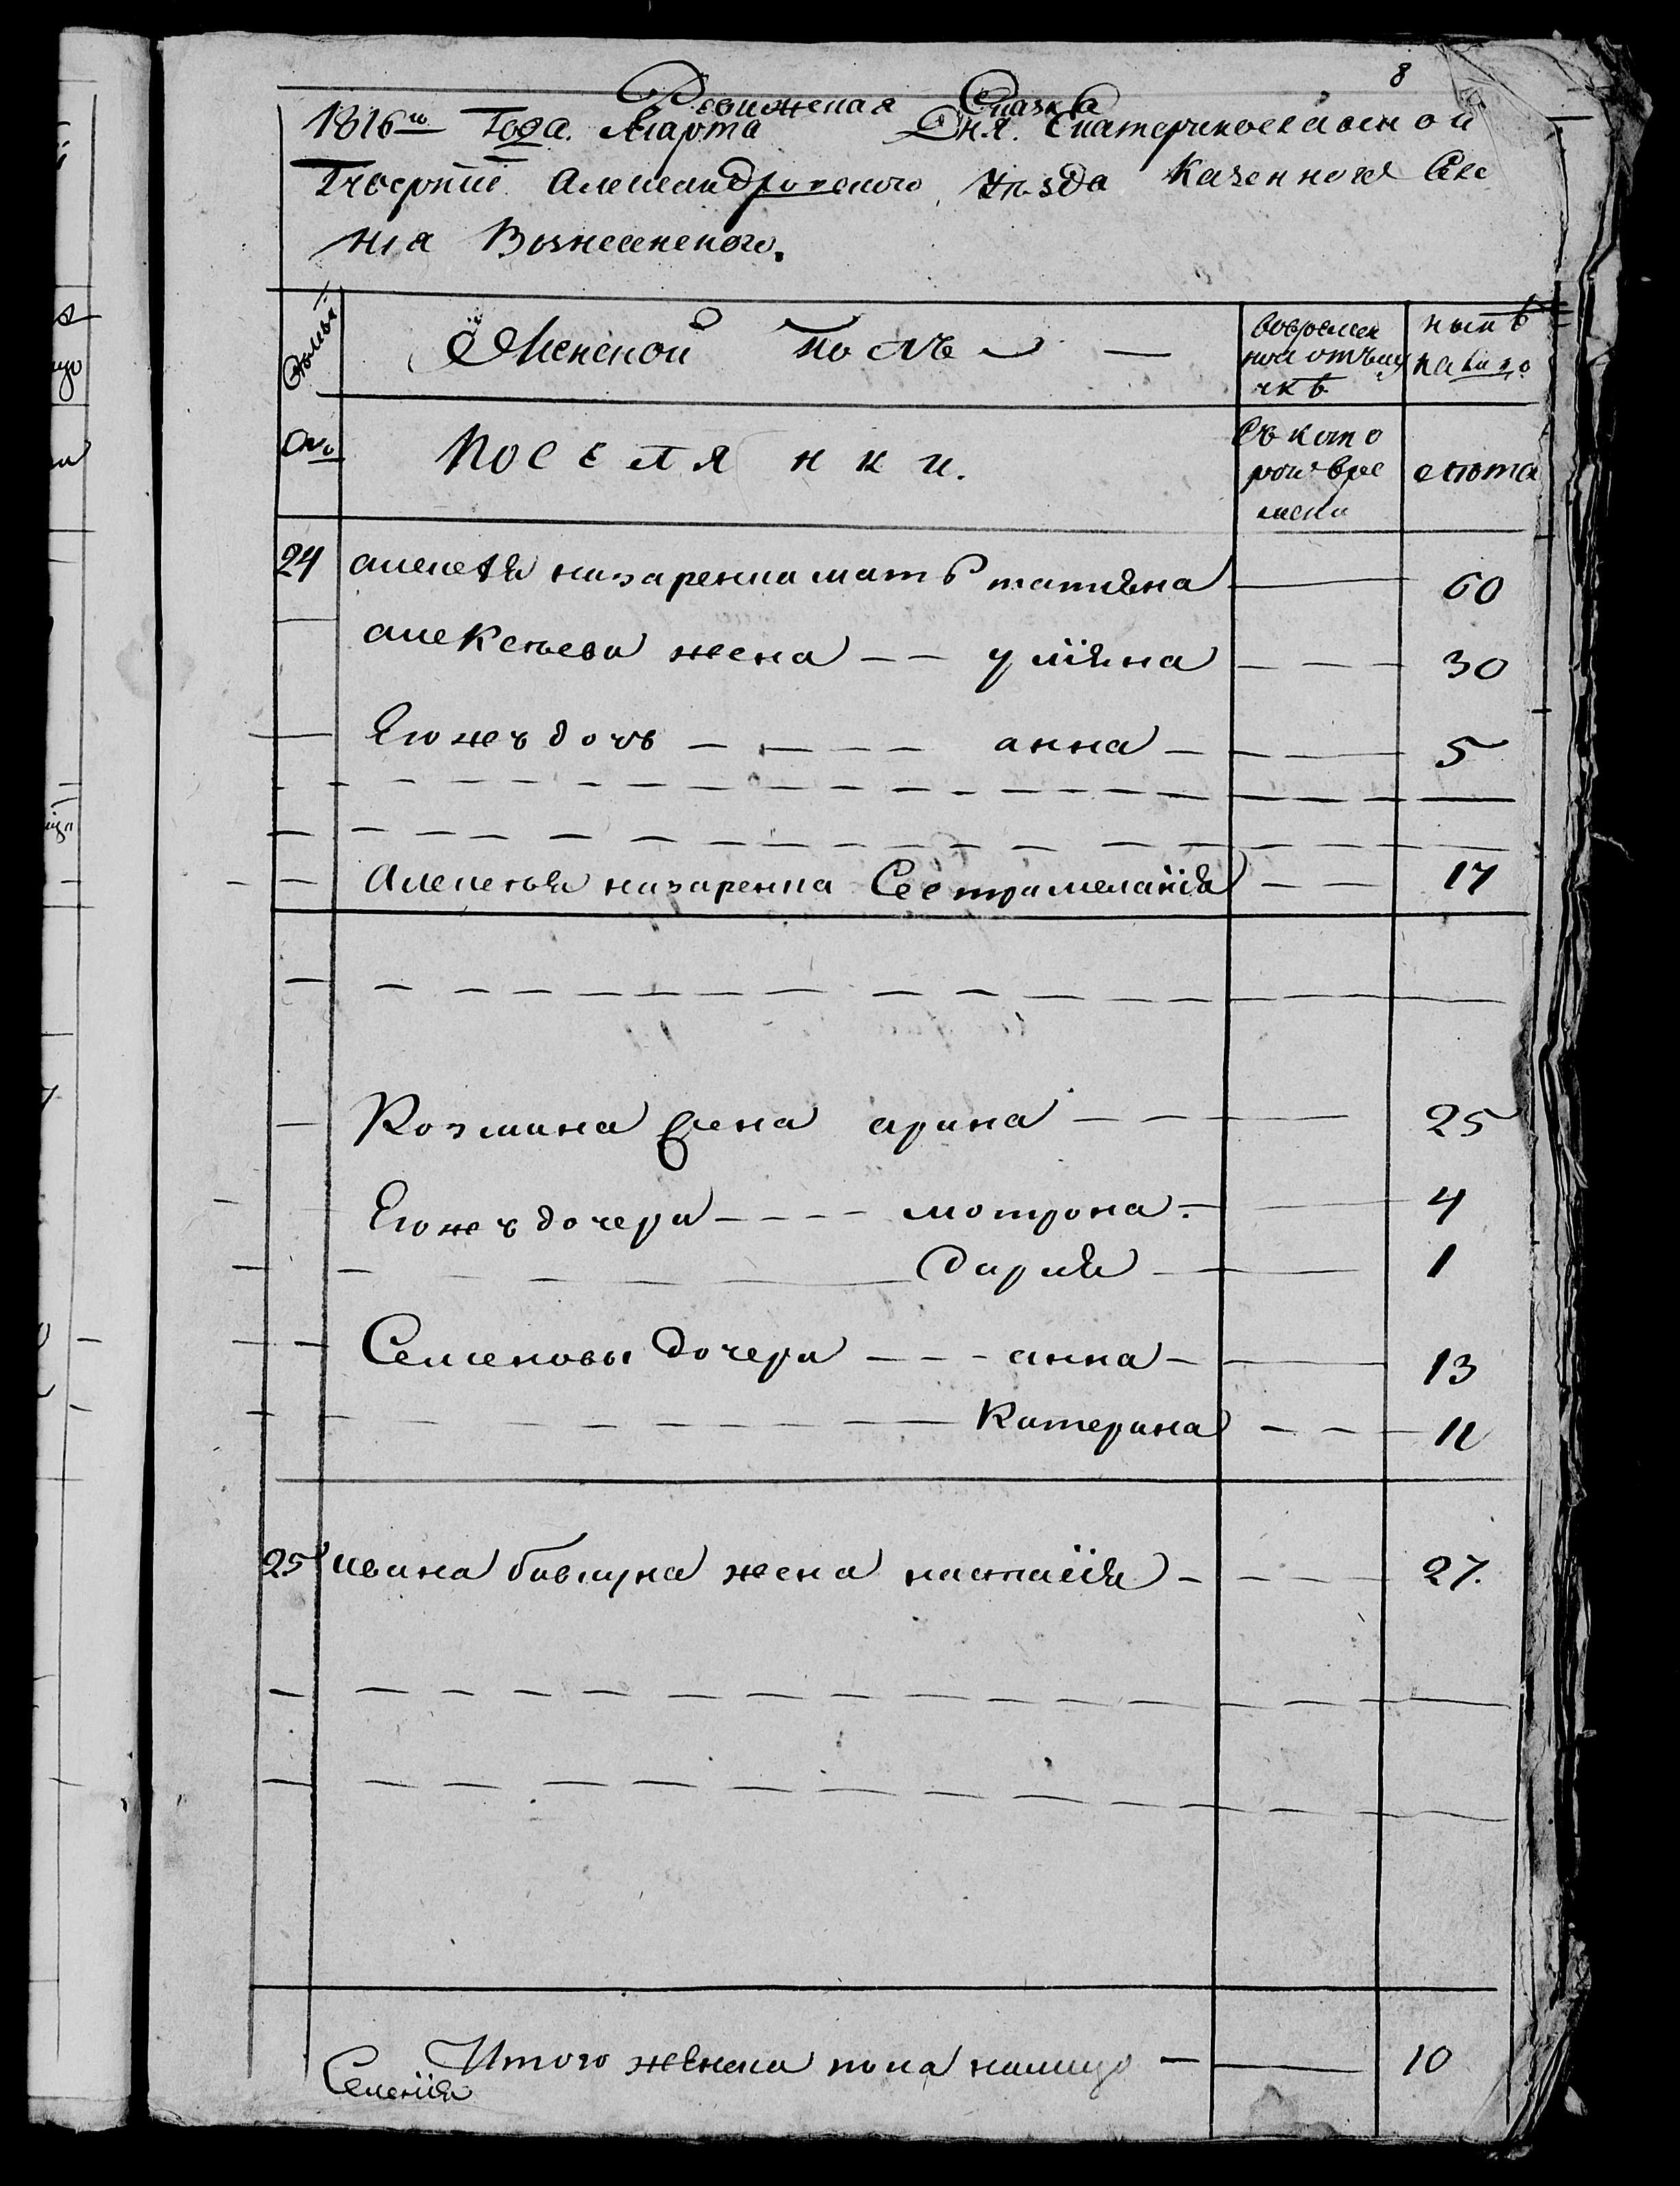 8
Ревижская Сказка
1816го Года. Марта Дня. Екатеринославской
Губернии Александровского Уезда Казенного Селе
ния Вознесенского.
Семьи
Женской Полъ
вовремен
ной отълу
чкѣ
нынѣ
налицо
№
Поселянки.
Съ кото
рого вре
мени
лѣта
24 алексѣя назаренка мать татияна 60
алексѣева жена улияна 30
Егожъ дочь анна 5
Алексѣя назаренка Сестра меланія 17
Козмина жена арина 25
Егожъ дочери мотрона. 4
дария 1
Семеновы дочери анна 13
Катерина 11
25 ивана бавкуна жена настасія 27.
Итого женска пола налицо 10